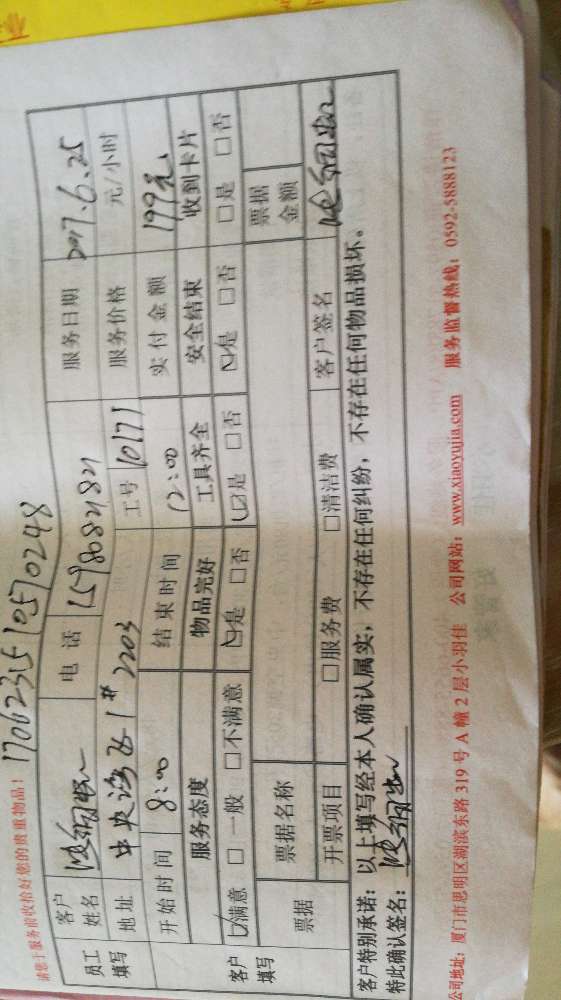 请您于服务前收拾好您的贵重物品！
1706231510570248
员工填写 客户姓名 电话 服务日期 2017.6.25
地址 中央 1# 2203 工号 10171 服务价格 元/小时
开始时间 8:00 结束时间 12:00 实付金额 199元
客户填写 服务态度 物品完好 工具齐全 安全结束 收到卡片
☑满意 □一般 □不满意 ☑是 □否 ☑是 □否 ☑是 □否 □是 □否
票据 票据名称 票据金额
开票项目 □服务费 □清洁费 客户签名
客户特别承诺：以上填写经本人确认属实，不存在任何纠纷，不存在任何物品损坏。
特此确认签名：
公司地址：厦门市思明区湖滨东路 319 号 A 幢 2 层小羽佳 公司网站：www.xiaoyujia.com 服务监督热线：0592-5888123